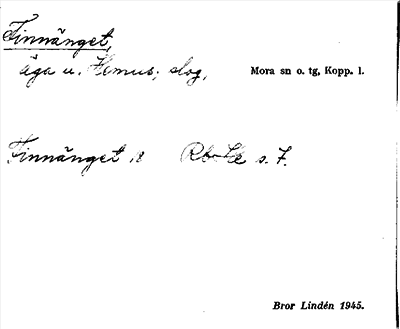 Finnänget,
äga u. Hemus; slog, Mora sn o. tg, Kopp. l.
Finnänget R s. 7.
Bror Lindén 1945.